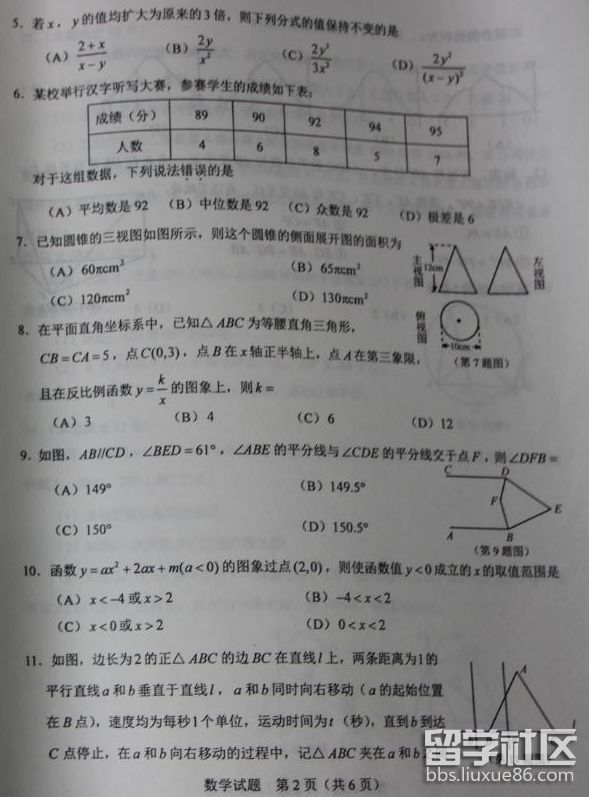 5. 若x，y的值均扩大为原来的3倍，则下列分式的值保持不变的是
(A) (2+x)/(x−y) (B) 2y/x² (C) 2y³/3x² (D) 2y²/(x−y)²
6. 某校举行汉字听写大赛，参赛学生的成绩如下表：
成绩（分） 89 90 92 94 95
人数 4 6 8 5 7
对于这组数据，下列说法错误的是
(A) 平均数是92 (B) 中位数是92 (C) 众数是92 (D) 极差是6
7. 已知圆锥的三视图如图所示，则这个圆锥的侧面展开图的面积为
(A) 60πcm² (B) 65πcm²
(C) 120πcm² (D) 130πcm²
主视图 12cm 左视图
俯视图 10cm
（第7题图）
8. 在平面直角坐标系中，已知△ABC为等腰直角三角形，
CB=CA=5，点C(0,3)，点B在x轴正半轴上，点A在第三象限，
且在反比例函数y=k/x的图象上，则k=
(A) 3 (B) 4 (C) 6 (D) 12
9. 如图，AB//CD，∠BED=61°，∠ABE的平分线与∠CDE的平分线交于点F，则∠DFB=
(A) 149° (B) 149.5°
(C) 150° (D) 150.5°
C D
F E
A B
（第9题图）
10. 函数y=ax²+2ax+m(a<0)的图象过点(2,0)，则使函数值y<0成立的x的取值范围是
(A) x<−4或x>2 (B) −4<x<2
(C) x<0或x>2 (D) 0<x<2
11. 如图，边长为2的正△ABC的边BC在直线l上，两条距离为1的
平行直线a和b垂直于直线l，a和b同时向右移动（a的起始位置
在B点），速度均为每秒1个单位，运动时间为t（秒），直到b到达
C点停止，在a和b向右移动的过程中，记△ABC夹在a和b
A
l
数学试题 第2页（共6页）
留学社区
bbs.liuxue86.com